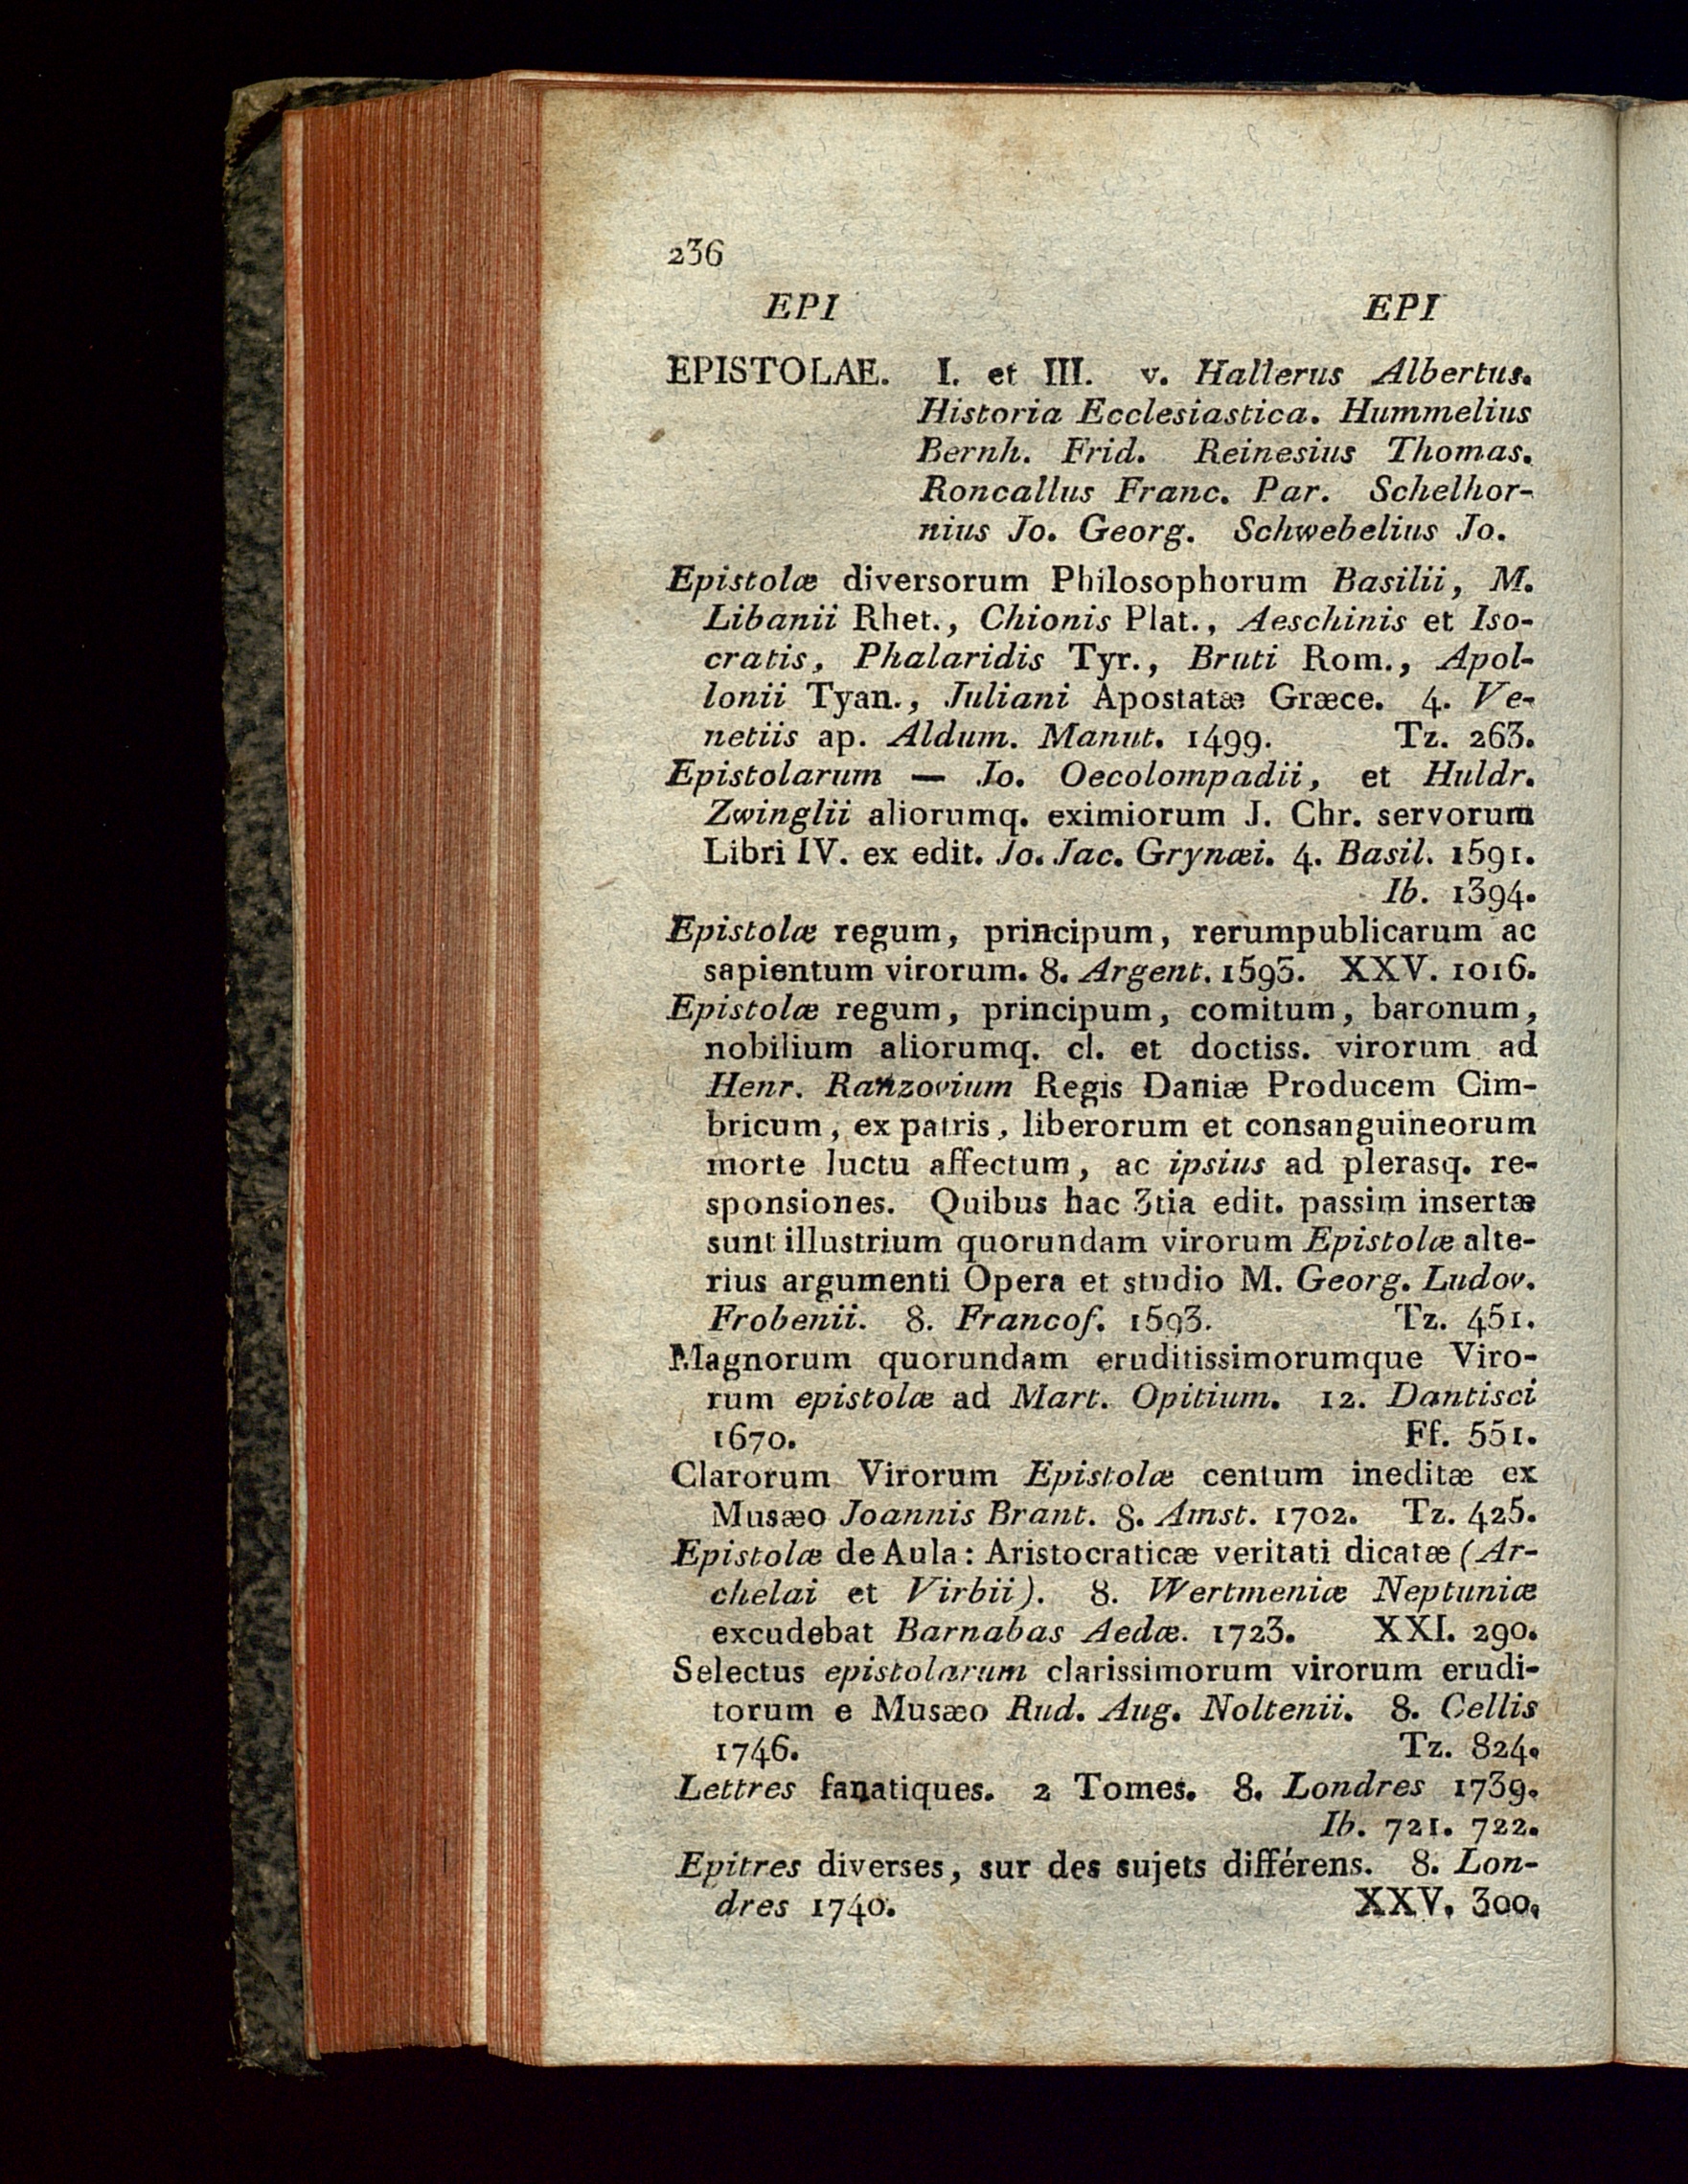 236
EPI EPI
EPISTOLAE. I. et III. v. Hallerus Albertus.
Historia Ecclesiastica. Hummelius
Bernh. Frid. Reinesius Thomas.
Roncallus Franc. Par. Schelhor-
nius Jo. Georg. Schwebelius Jo.
Epistolæ diversorum Philosophorum Basilii, M.
Libanii Rhet., Chionis Plat., Aeschinis et Iso-
cratis, Phalaridis Tyr., Bruti Rom., Apol-
lonii Tyan., Juliani Apostatæ Græce. 4. Ve-
netiis ap. Aldum. Manut. 1499. Tz. 263.
Epistolarum — Jo. Oecolompadii, et Huldr.
Zwinglii aliorumq. eximiorum J. Chr. servorum
Libri IV. ex edit. Jo. Jac. Grynæi. 4. Basil. 1591.
Ib. 1394.
Epistolæ regum, principum, rerumpublicarum ac
sapientum virorum. 8. Argent. 1593. XXV. 1016.
Epistolæ regum, principum, comitum, baronum,
nobilium aliorumq. cl. et doctiss. virorum ad
Henr. Ranzovium Regis Daniæ Producem Cim-
bricum, ex patris, liberorum et consanguineorum
morte luctu affectum, ac ipsius ad plerasq. re-
sponsiones. Quibus hac 3tia edit. passim insertæ
sunt illustrium quorundam virorum Epistolæ alte-
rius argumenti Opera et studio M. Georg. Ludov.
Frobenii. 8. Francof. 1593. Tz. 451.
Magnorum quorundam eruditissimorumque Viro-
rum epistolæ ad Mart. Opitium. 12. Dantisci
1670. Ff. 551.
Clarorum Virorum Epistolæ centum ineditæ ex
Musæo Joannis Brant. 8. Amst. 1702. Tz. 425.
Epistolæ de Aula: Aristocraticæ veritati dicatæ (Ar-
chelai et Virbii). 8. Wertmeniæ Neptuniæ
excudebat Barnabas Aedæ. 1723. XXI. 290.
Selectus epistolarum clarissimorum virorum erudi-
torum e Musæo Rud. Aug. Noltenii. 8. Cellis
1746. Tz. 824.
Lettres fanatiques. 2 Tomes. 8. Londres 1739.
Ib. 721. 722.
Epitres diverses, sur des sujets différens. 8. Lon-
dres 1740. XXV. 300.